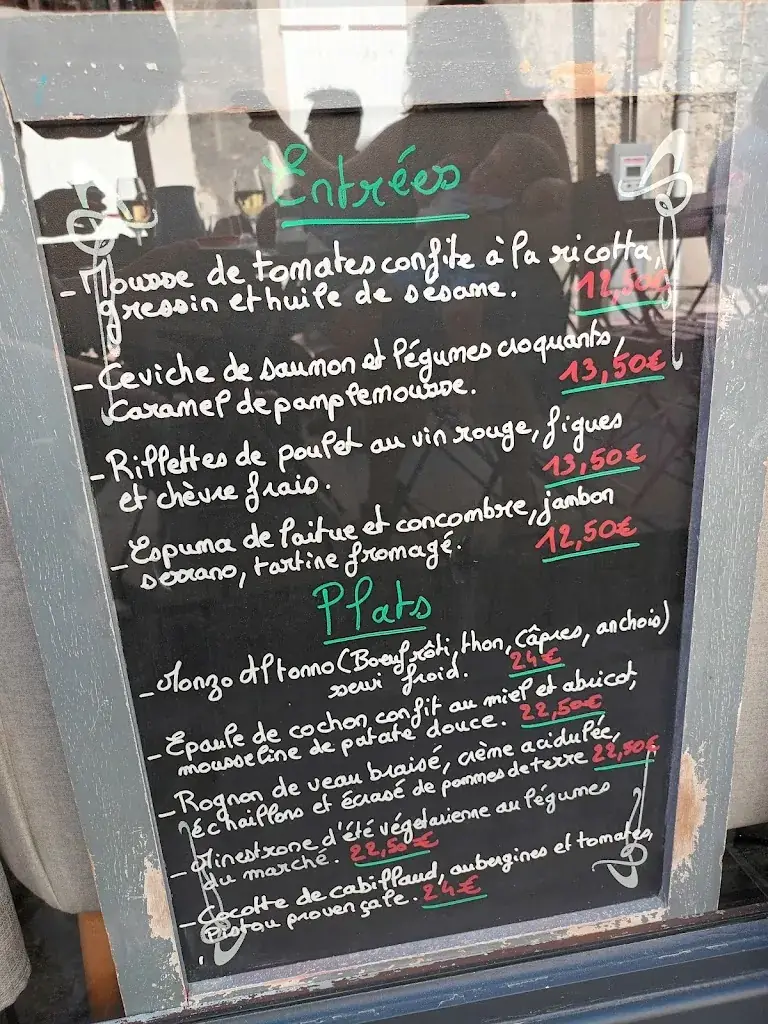 Entrées
- Mousse de tomates confite à la ricotta,
gressin et huile de sésame. 12,50€
- Ceviche de saumon et légumes croquants,
caramel de pamplemousse. 13,50€
- Rillettes de poulet au vin rouge, figues
et chèvre frais. 13,50€
- Espuma de laitue et concombre, jambon
serrano, tartine fromagé. 12,50€
Plats
- Monzo Al tonno (Boeuf rôti, thon, câpres, anchois)
servi froid. 24€
- Epaule de cochon confit au miel et abricot,
mousseline de patate douce. 22,50€
- Rognon de veau braisé, crème acidulée,
échaillons et écrasé de pommes de terre 22,50€
- Minestrone d'été végétarienne au légumes
du marché. 22,50€
- Cocotte de cabillaud, aubergines et tomates,
Pistou provençale. 24€